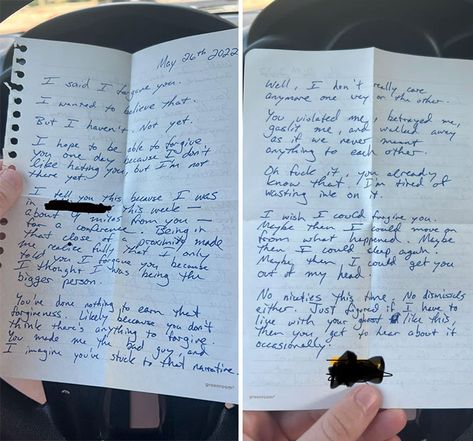 May 26th 2022
I said I forgave you.
I wanted to believe that.
But I haven't. Not yet.
I hope to be able to forgive
you one day because I don't
like hating you, but I'm not
there yet.
I tell you this because I was
in this week —
about 4 miles from you —
for a conference. Being in
that close of proximity made
me realize fully that I only
told you I forgave you because
I thought I was being the
bigger person.
You've done nothing to earn that
forgiveness. Likely because you don't
think there's anything to forgive.
You made me the bad guy, and
I imagine you've stuck to that narrative.
greenroom
Well, I don't really care
anymore one way or the other.
You violated me, betrayed me,
gaslit me, and walked away
as if we never meant
anything to each other
Oh fuck it, you already
know that. I'm tired of
wasting ink on it.
I wish I could forgive you.
Maybe then I could move on
from what happened. Maybe
then I could sleep again.
Maybe then I could get you
out of my head.
No niceties this time. No dismissals
either. Just figured if I have to
live with your ghost like this,
then you get to hear about it
occasionally.
greenroom